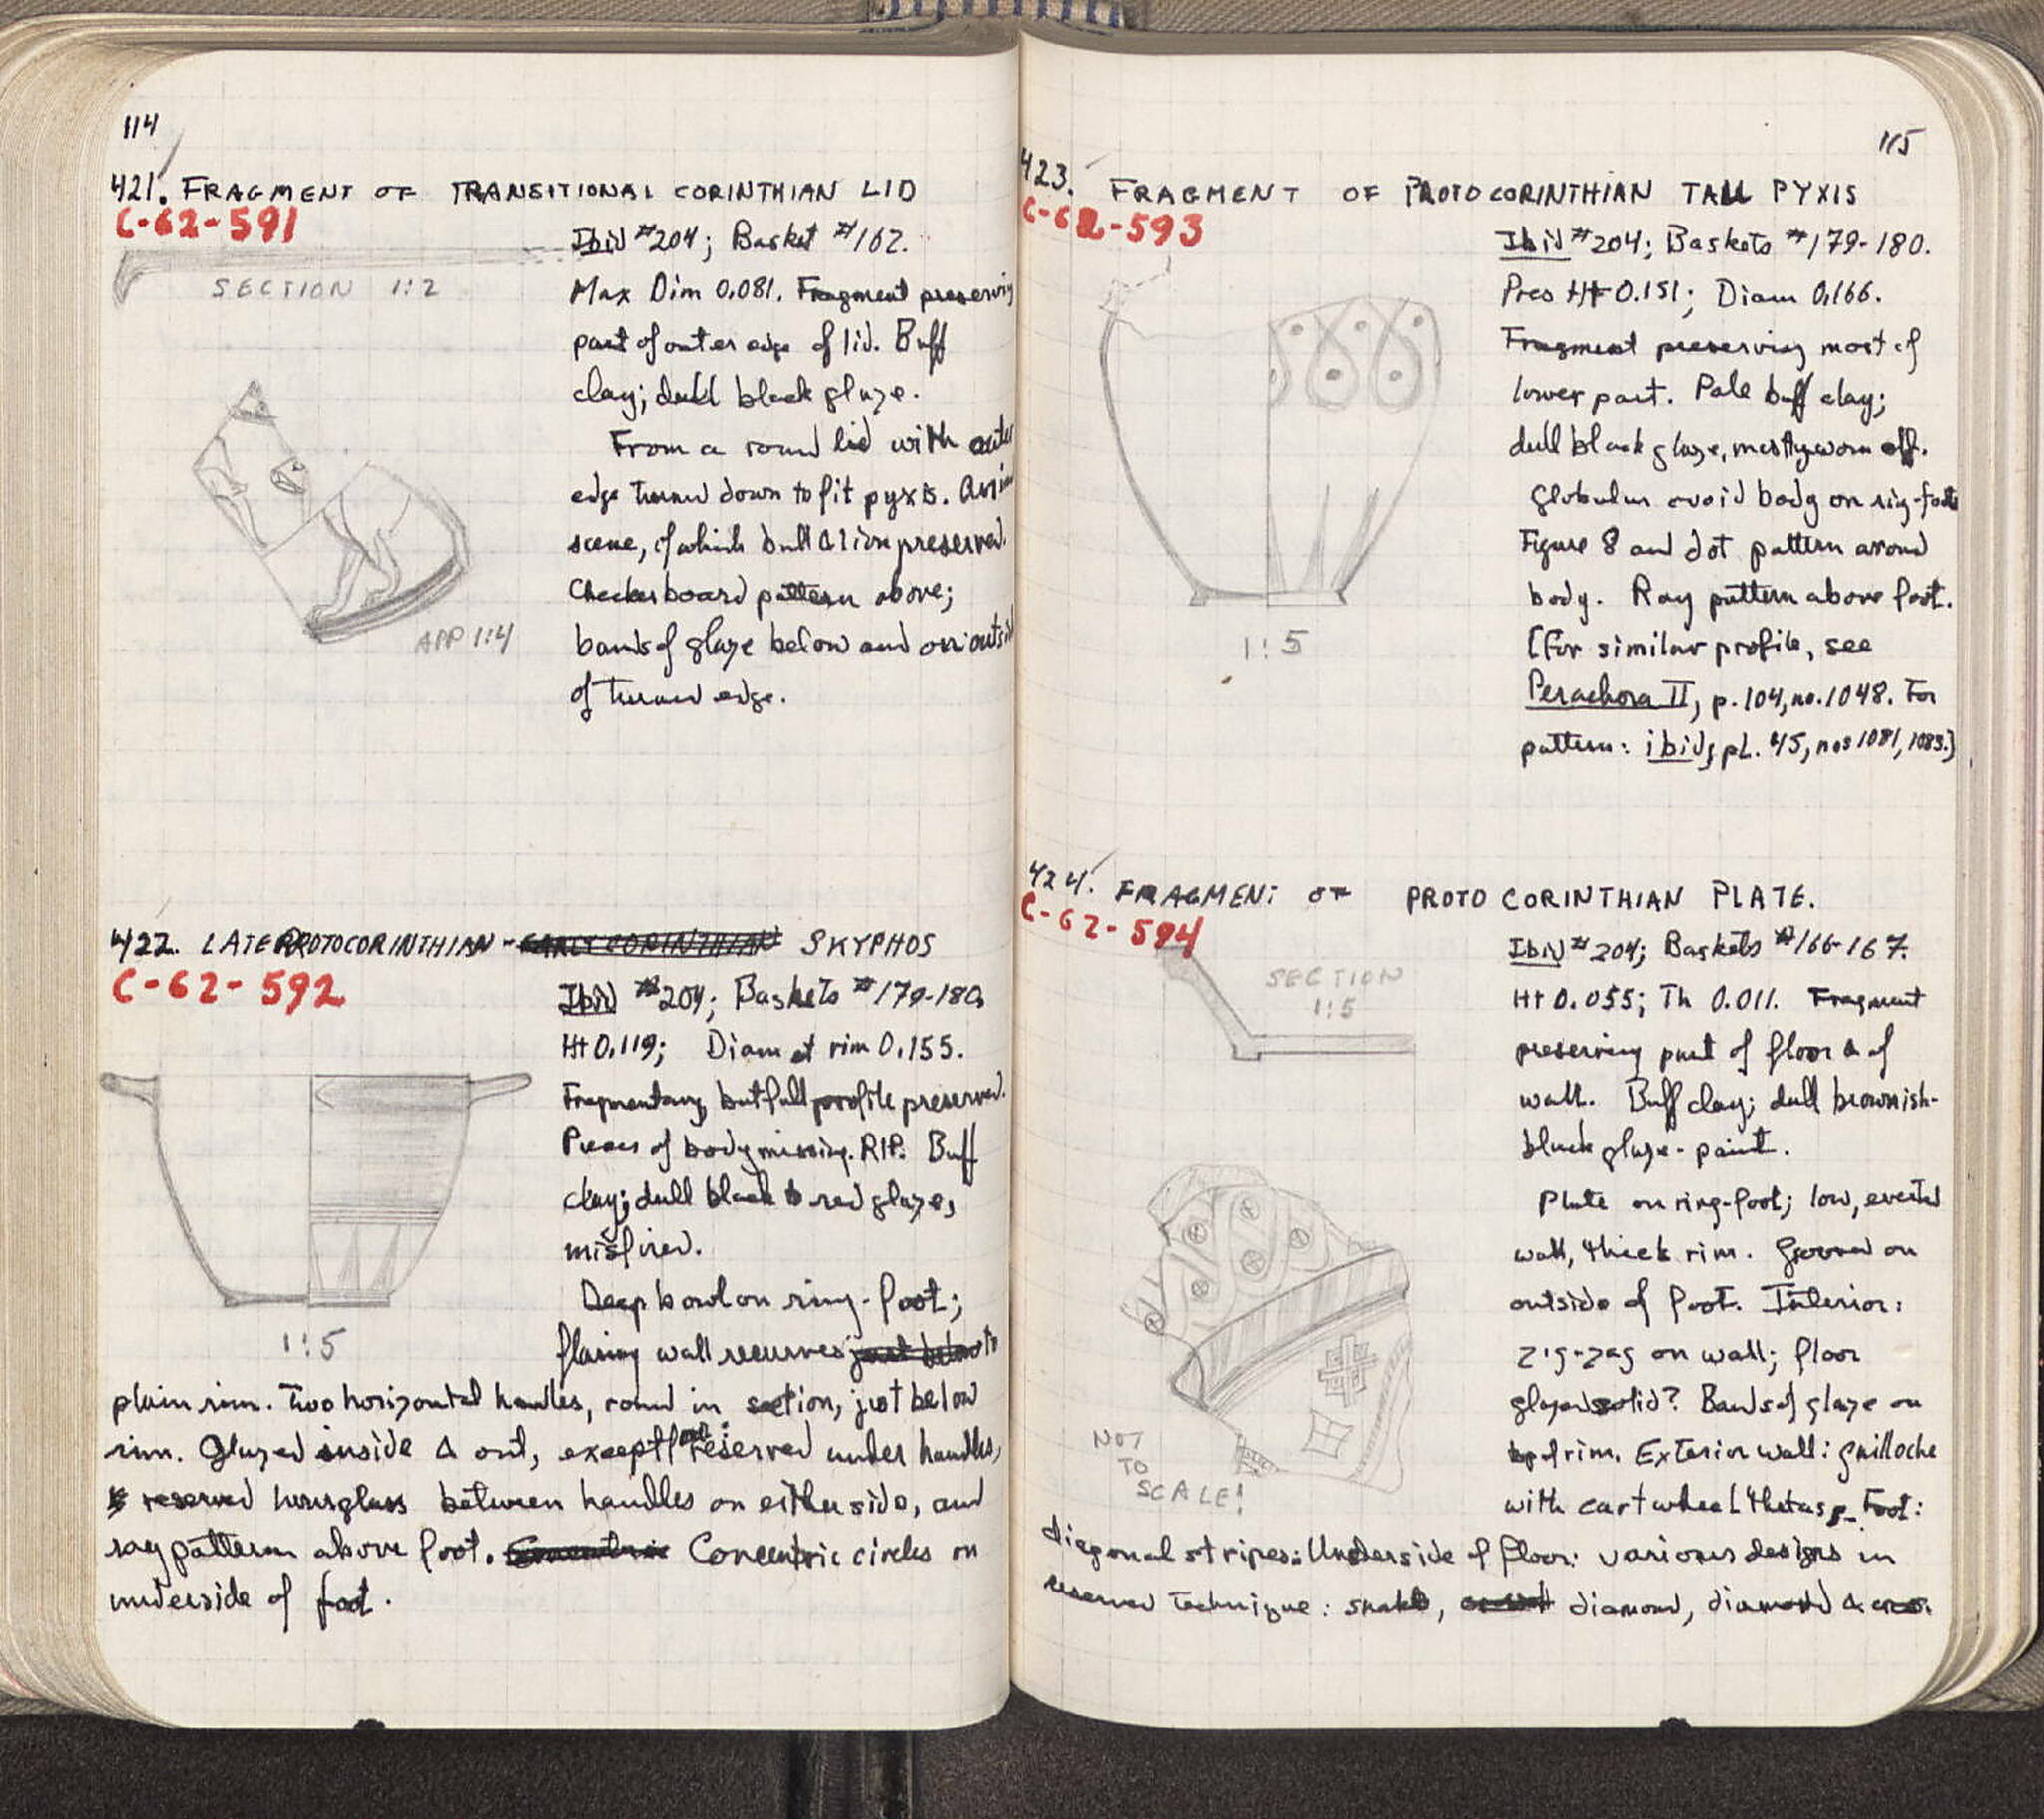 114
421. FRAGMENT OF TRANSITIONAL CORINTHIAN LID
C-62-591
Ibid #204; Basket #162.
SECTION 1:2
Max Dim 0.081. Fragment preserving
part of outer edge of lid. Buff
clay; dull black glaze.
From a round lid with outer
edge turned down to fit pyxis. Animal
scene, of which bull & lion preserved.
Checkerboard pattern above;
bands of glaze below and on outside
of turned edge.
APP 1:4
422. LATE PROTOCORINTHIAN - EARLY CORINTHIAN SKYPHOS
C-62-592
Ibid #204; Baskets #179-180.
Ht 0.119; Diam at rim 0.155.
Fragmentary, but full profile preserved.
Pieces of body missing. RIP. Buff
clay; dull black to red glaze,
misfired.
Deep bowl on ring-foot;
flaring wall recurves just below to
1:5
plain rim. Two horizontal handles, round in section, just below
rim. Glazed inside & out, except for: reserved under handles,
reserved hourglass between handles on either side, and
ray pattern above foot. Concentric Concentric circles on
underside of foot.
115
423. FRAGMENT OF PROTOCORINTHIAN TALL PYXIS
C-62-593
Ibid #204; Baskets #179-180.
Pres Ht 0.151; Diam 0.166.
Fragment preserving most of
lower part. Pale buff clay;
dull black glaze, mostly worn off.
Globular ovoid body on ring-foot.
Figure 8 and dot pattern around
body. Ray pattern above foot.
[For similar profile, see
Perachora II, p. 104, no. 1048. For
pattern: ibid, pl. 45, nos 1081, 1083.]
1:5
424. FRAGMENT OF PROTOCORINTHIAN PLATE.
C-62-594
Ibid #204; Baskets #166-167.
SECTION
1:5
Ht 0.055; Th 0.011. Fragment
preserving part of floor & of
wall. Buff clay; dull brownish-
black glaze-paint.
Plate on ring-foot; low, everted
wall, thick rim. Groove on
outside of foot. Interior:
zig-zag on wall; floor
glazed solid? Bands of glaze on
top of rim. Exterior wall: guilloche
with cartwheel thetas. Foot:
NOT
TO
SCALE!
diagonal stripes. Underside of floor: various designs in
reserved technique: snake, diamond, diamond & cross.